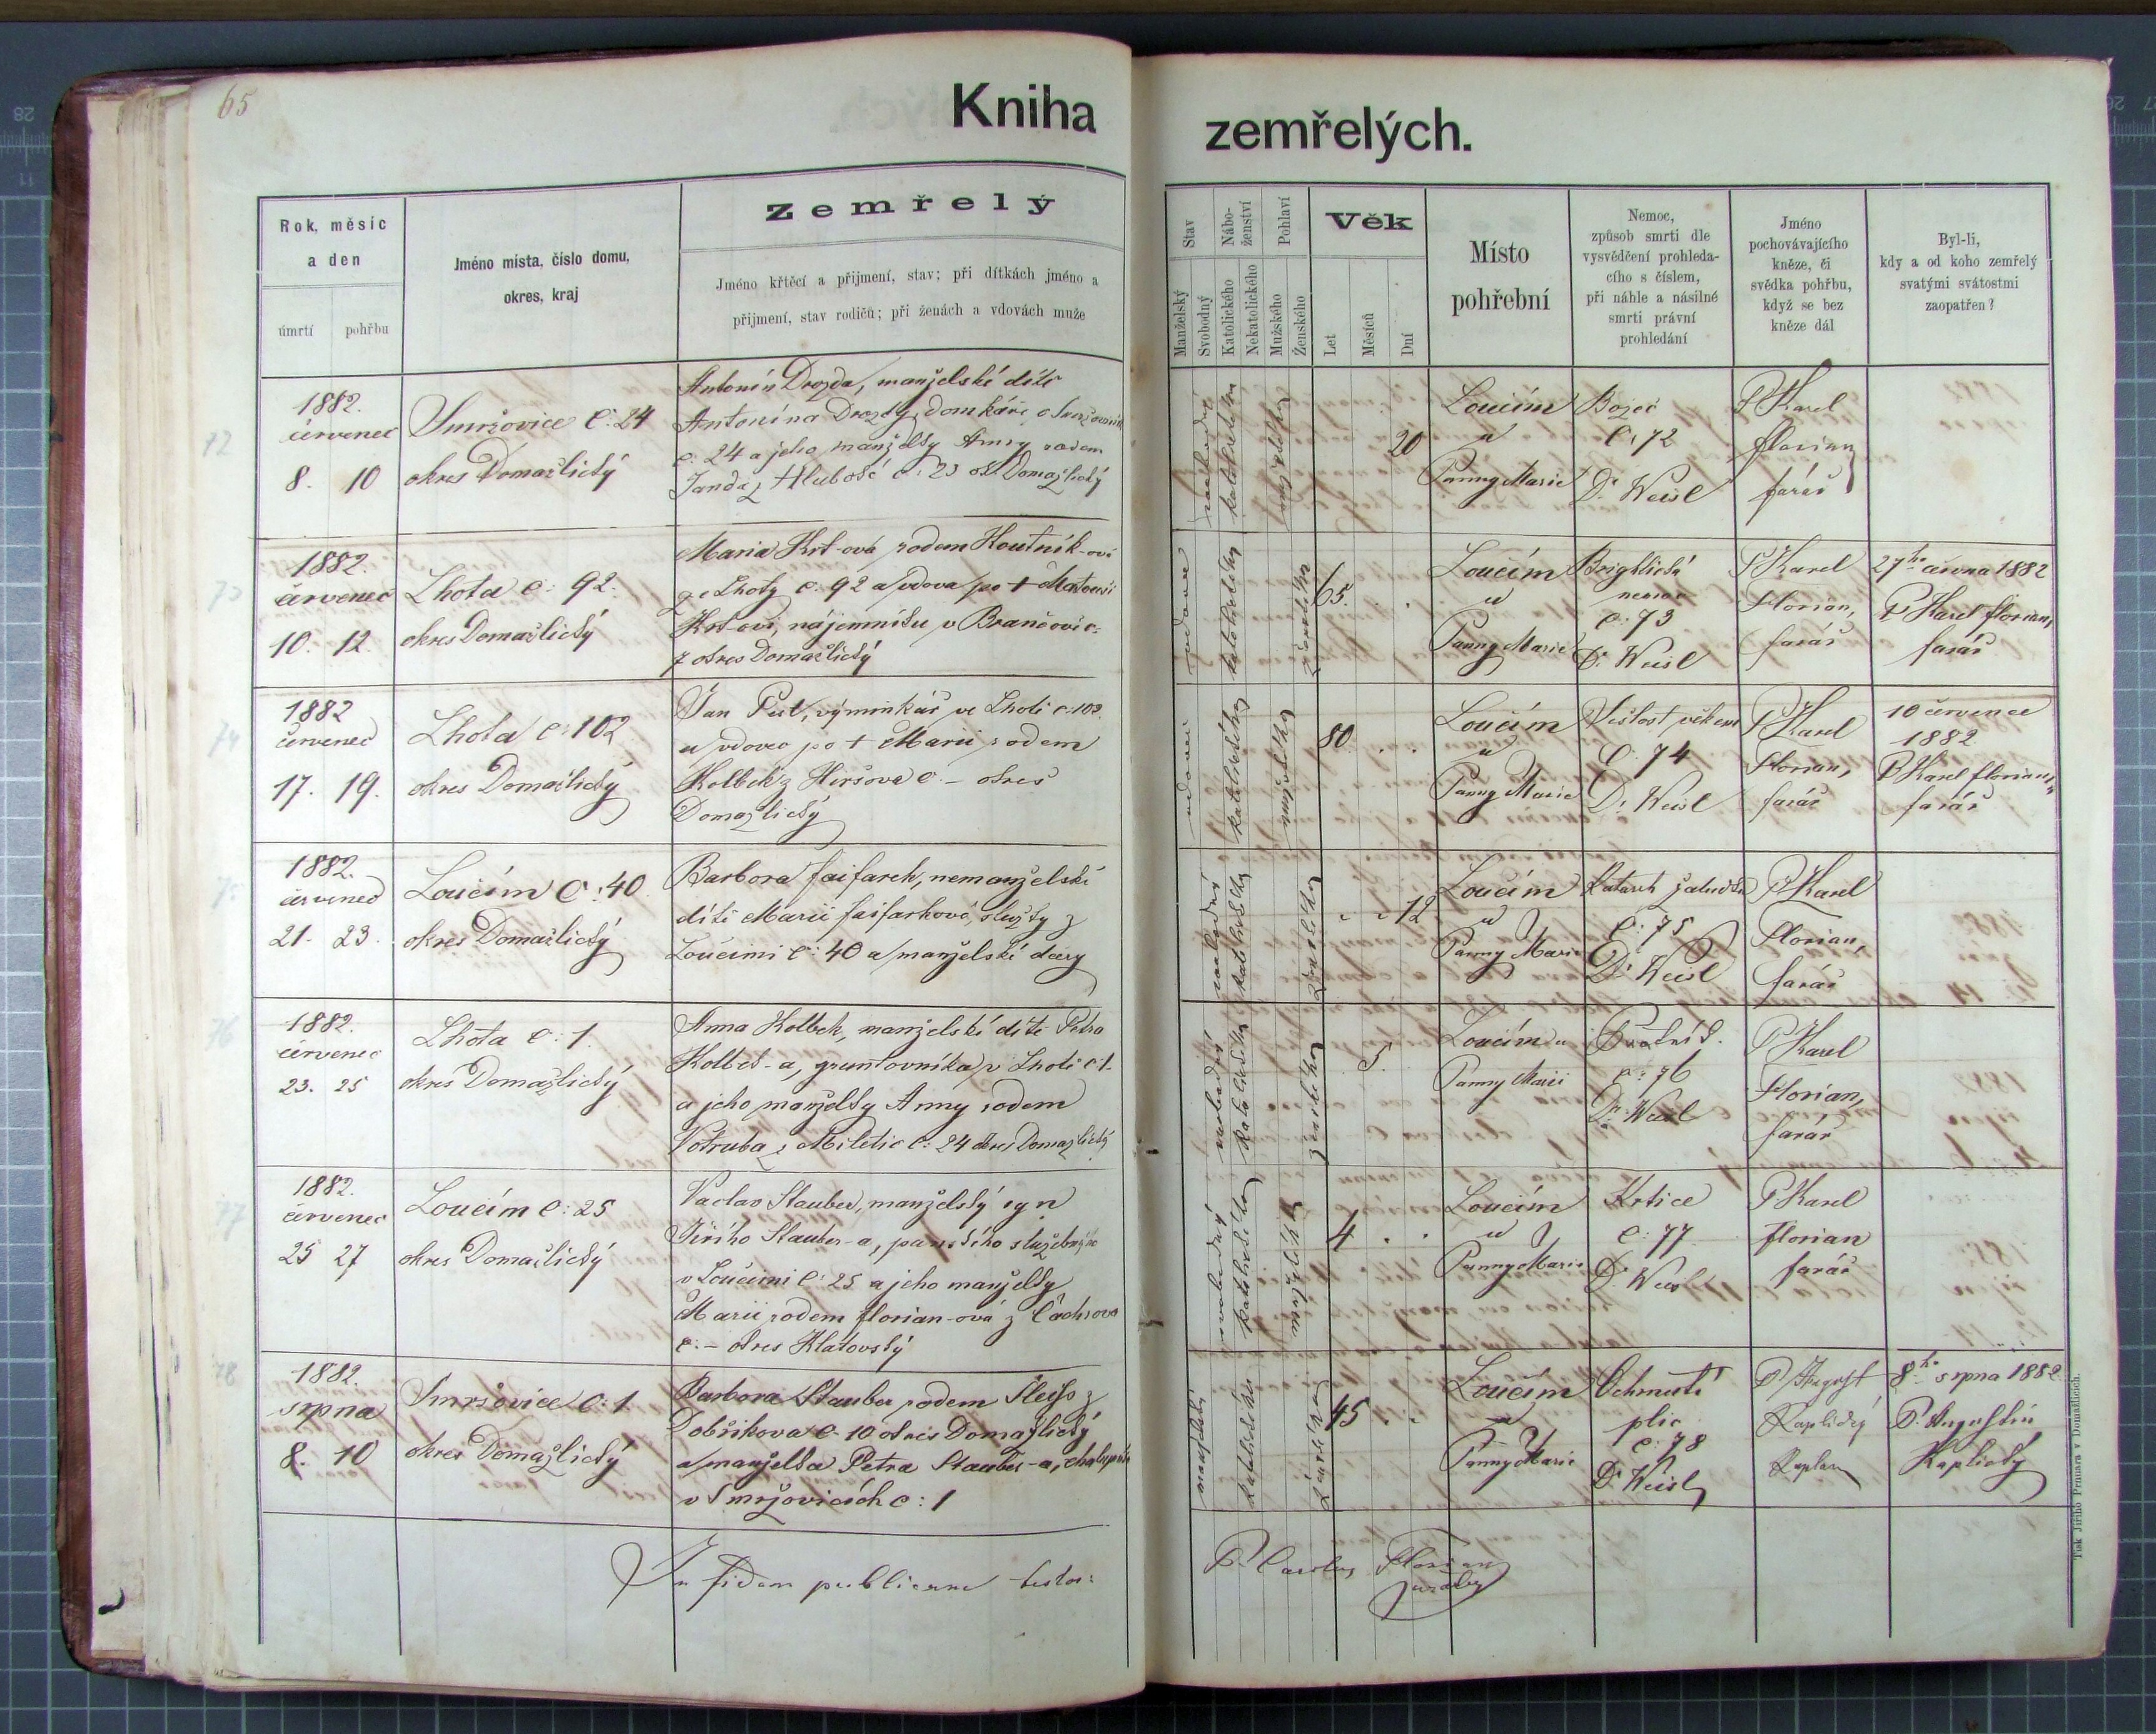 65
Kniha
zemřelých.
Rok, měsíc
a den
úmrtí
pohřbu
Jméno místa, číslo domu,
okres, kraj
Zemřelý
Jméno křtěcí a přijmení, stav; při dítkách jméno a
přijmení, stav rodičů; při ženách a vdovách muže
Stav
Manželský
Svobodný
Nábo-
ženství
Katolického
Nekatolického
Pohlaví
Mužského
Ženského
Věk
Let
Měsíců
Dní
Místo
pohřební
Nemoc,
způsob smrti dle
vysvědčení prohleda-
cího s číslem,
při náhle a násilné
smrti právní
prohledání
Jméno
pochovávajícího
kněze, či
svědka pohřbu,
když se bez
kněze dál
Byl-li,
kdy a od koho zemřelý
svatými svátostmi
zaopatřen?
72
1882.
červenec
8. 10
Smržovice č: 24
okres Domažlický
Antonín Drozda, manželské dítě
Antonína Drozdy, domkáře
č: 24 a jeho manželky Anny rodem
Janda z Hluboké č: 23 Domažlický
20
Loučim
u
Panny Marie
Božec
č: 72
Dr. Weisl
P. Karel
Florian
farář
73
1882.
červenec
10. 12.
Lhota č: 92.
okres Domažlický
Maria Krt-ová rodem Koutník-ová
ze Lhoty č. 92 a vdova po † Matouši
Krt-ovi, nájemníku v Brančovic-
z okres Domažlický
65.
Loučim
u
Panny Marie
nemoc
č: 73
Dr. Weisl
P. Karel
Florian,
farář
27ho června 1882
P. Karel Florian,
farář
74
1882
červenec
17. 19.
Lhota č: 102
okres Domažlický
Jan Pivl, výminkář ve Lhotě č. 102.
a vdovec po † Marii rodem
Kolbek z č. – okres
Domažlický
80
Loučim
u
Panny Marie
Sešlost věkem
č. 74
Dr. Weisl
P. Karel
Florian,
farář
10 července
1882
P. Karel Florian,
farář
75
1882.
červenec
21. 23.
Loučim č: 40
okres Domažlický
Barbora Faifarek, nemanželské
dítě Marie Faifarkové, služky z
Loučimi č: 40 a manželské dcery
12
Loučim
u
Panny Marie
Katarrh žaludku
č: 75
Dr. Weisl
P. Karel
Florian,
farář
76
1882.
červenec
23. 25
Lhota č: 1.
okres Domažlický
Anna Kolbek, manželské dítě Petra
Kolbek-a, gruntovníka v Lhotě č. 1.
a jeho manželky Anny rodem
Votruba z Miletic č: 24 okres Domažlický
5.
Loučim u
Panny Marii
Psotník.
č: 76
Dr. Weisl
P. Karel
Florian,
farář
77
1882.
červenec
25 27
Loučim č: 25
okres Domažlický
Václav Stauber, manželský syn
Jiřího Stauber-a, panského služebníka
v Loučimi č: 25 a jeho manželky
Marii rodem Florian-ová z Čachrova
č: – okres Klatovský
4
Loučim
u
Panny Marie
Krtice
č: 77
Dr. Weisl
P. Karel
Florian
farář
78
1882.
srpna
8. 10
Smržovice č: 1.
okres Domažlický
Barbora Stauber rodem z
Dobříkova č. 10 okres Domažlický
a manželka Petra Stauber-a, chalupníka
v Smržovicích č: 1
45
Loučim
u
Panny Marie
Ochrnutí
plic
č: 78
Dr. Weisl
P. August
Kaplický
Kaplan
8ho srpna 1882.
P. Augustin
Kaplický
In fidem publicam testor:
P. Carolus Florian
Tisk Jiřího Prunara v Domažlicích.